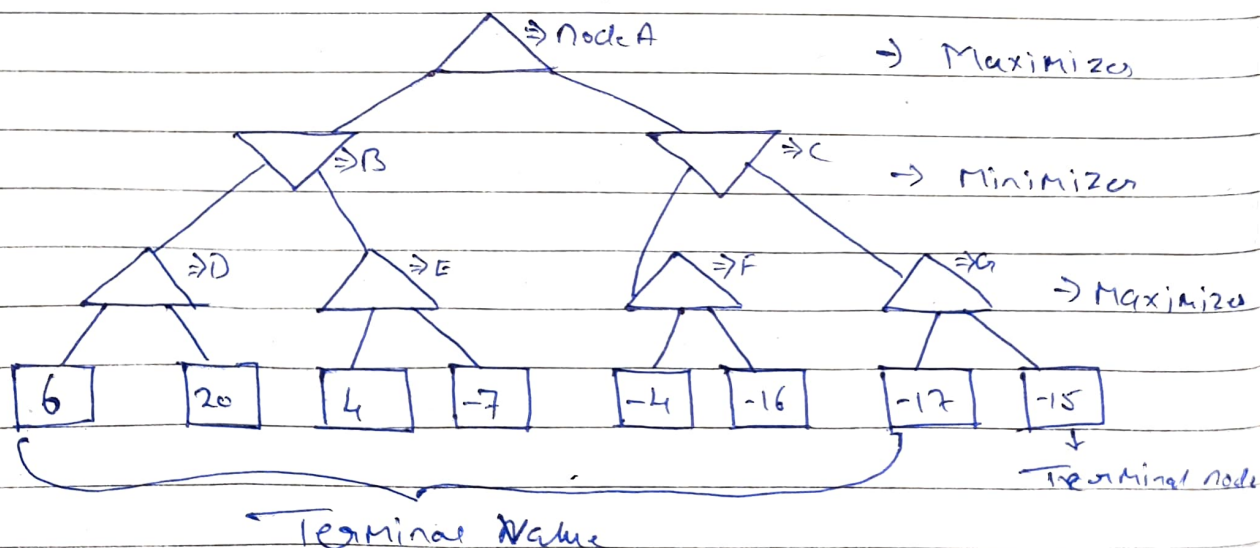 ⇒ node A
→ Maximizer
⇒ B
⇒ C
→ Minimizer
⇒ D
⇒ E
⇒ F
⇒ G
→ Maximizer
6 20 4 -7 -4 -16 -17 -15
Terminal node
Terminal Value